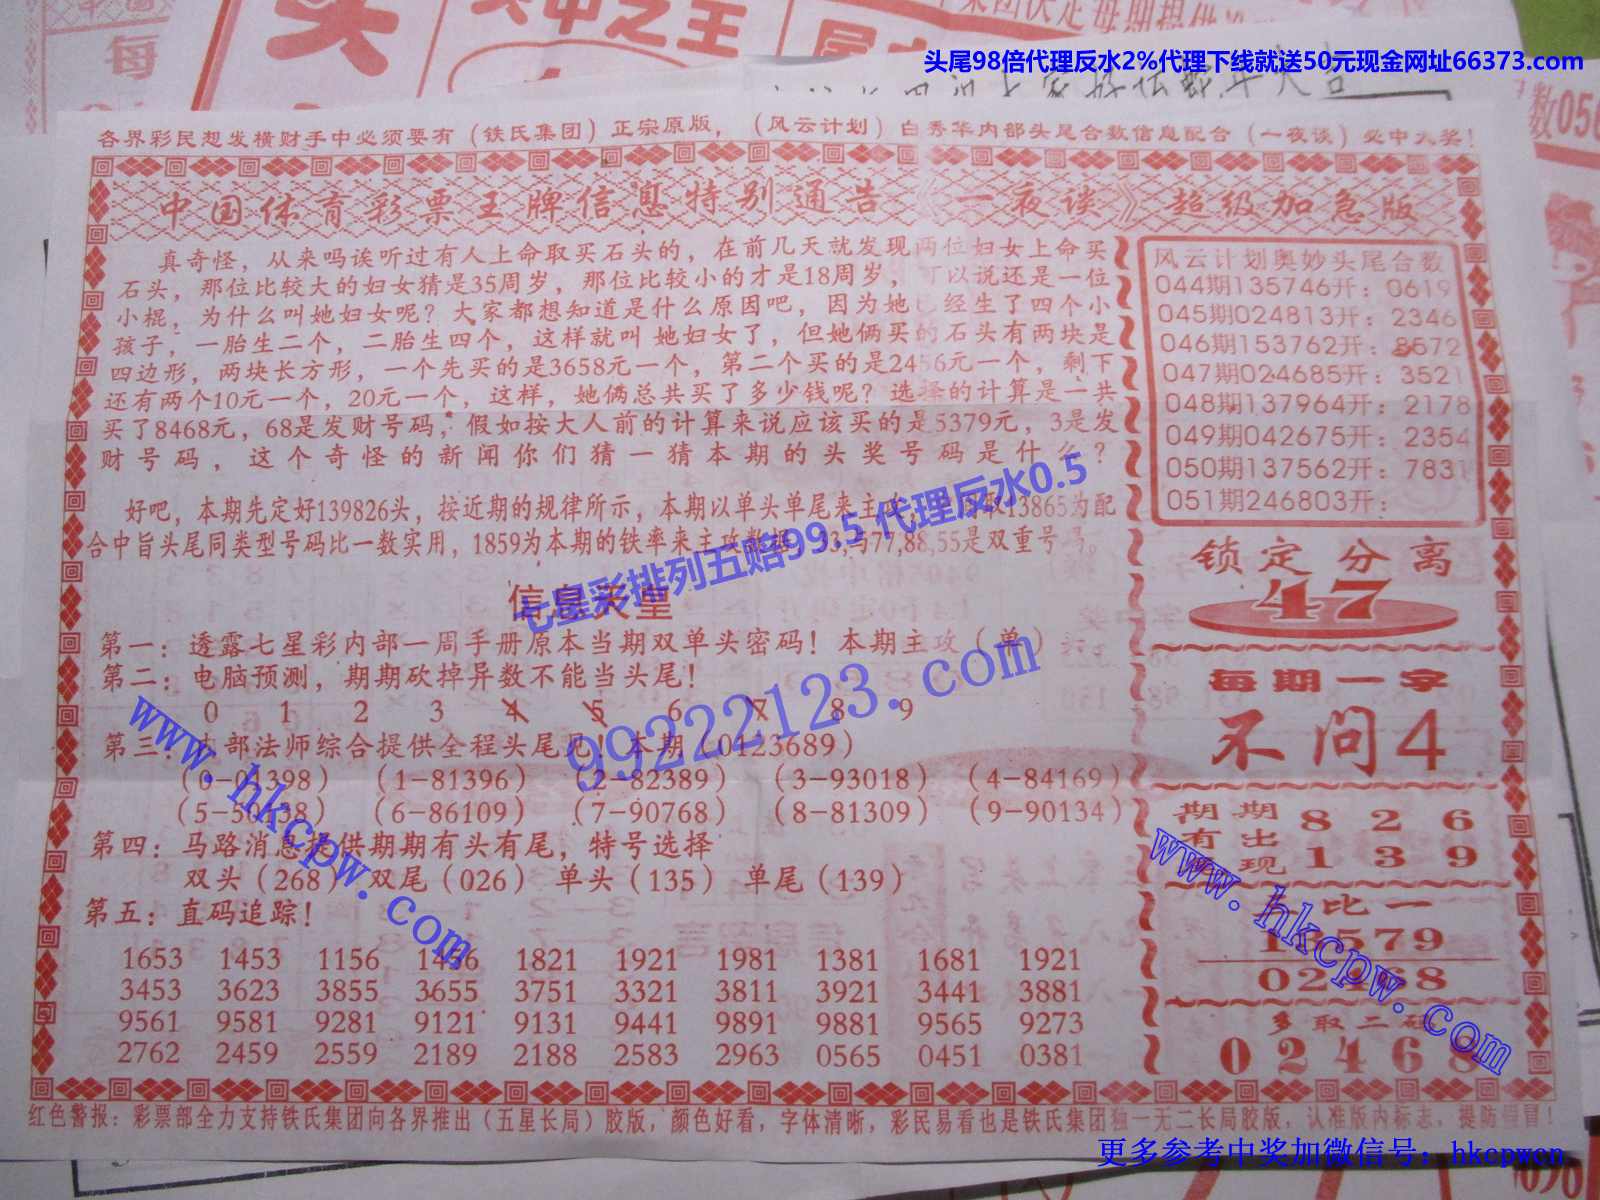 头尾98倍代理反水2%代理下线就送50元现金网址66373.com
各界彩民想发横财手中必须要有（铁氏集团）正宗原版，（风云计划）白秀华内部头尾合数信息配合（一夜谈）必中大奖！
中国体育彩票王牌信息特别通告《一夜谈》超级加急版
真奇怪，从来吗诶听过有人上命取买石头的，在前几天就发现两位妇女上命买
石头，那位比较大的妇女猜是35周岁，那位比较小的才是18周岁，可以说还是一位
小棍，为什么叫她妇女呢？大家都想知道是什么原因吧，因为她已经生了四个小
孩子，一胎生二个，二胎生四个，这样就叫她妇女了，但她俩买的石头有两块是
四边形，两块长方形，一个先买的是3658元一个，第二个买的是2456元一个，剩下
还有两个10元一个，20元一个，这样，她俩总共买了多少钱呢？选择的计算是一共
买了8468元，68是发财号码，假如按大人前的计算来说应该买的是5379元，3是发
财号码，这个奇怪的新闻你们猜一猜本期的头奖号码是什么？
好吧，本期先定好139826头，按近期的规律所示，本期以单头单尾来主攻 取13865为配
合中旨头尾同类型号码比一数实用，1859为本期的铁率来主攻数据 33,与77,88,55是双重号号。
七星彩排列五赔99.5 代理反水0.5
信息天皇
第一：透露七星彩内部一周手册原本当期双单头密码！本期主攻（单）
第二：电脑预测，期期砍掉异数不能当头尾！
0 1 2 3 4 5 6 7 8 9
第三：内部法师综合提供全程头尾见！本期（0123689）
（0-01398）（1-81396）（2-82389）（3-93018）（4-84169）
（5-50138）（6-86109）（7-90768）（8-81309）（9-90134）
第四：马路消息提供期期有头有尾，特号选择
双头（268）双尾（026）单头（135）单尾（139）
第五：直码追踪！
1653 1453 1156 1456 1821 1921 1981 1381 1681 1921
3453 3623 3855 3655 3751 3321 3811 3921 3441 3881
9561 9581 9281 9121 9131 9441 9891 9881 9565 9273
2762 2459 2559 2189 2188 2583 2963 0565 0451 0381
风云计划奥妙头尾合数
044期135746开：0619
045期024813开：2346
046期153762开：8572
047期024685开：3521
048期137964开：2178
049期042675开：2354
050期137562开：7831
051期246803开：
锁定分离
47
每期一字
不问4
期期 8 2 6
有出 1 3 9
现
比一
13579
02468
多取二码
02468
www.hkcpw.com
99222123.com
www.hkcpw.com
红色警报：彩票部全力支持铁氏集团向各界推出（五星长局）胶版，颜色好看，字体清晰，彩民易看也是铁氏集团独一无二长局胶版，认准版内标志，提防假冒！
更多参考中奖加微信号：hkcpwcn